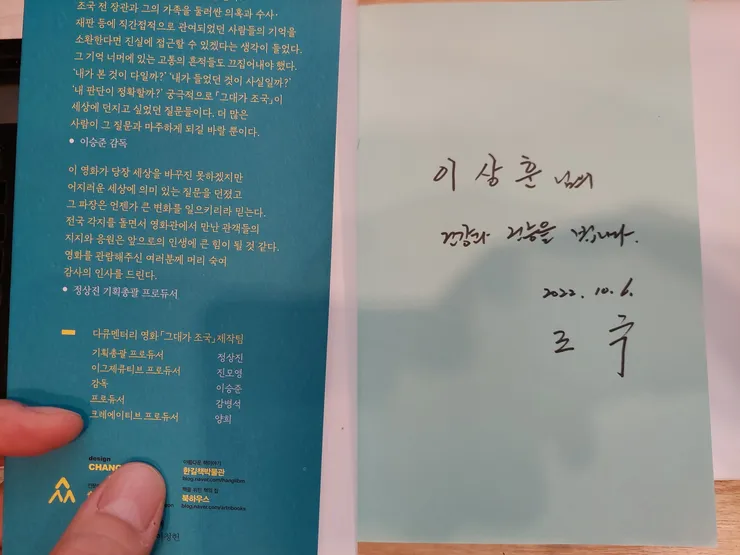 조국 전 장관과 그의 가족을 둘러싼 의혹과 수사·
재판 등에 직간접적으로 관여되었던 사람들의 기억을
소환한다면 진실에 접근할 수 있겠다는 생각이 들었다.
그 기억 너머에 있는 고통의 흔적들도 끄집어내야 했다.
'내가 본 것이 다일까?' '내가 들었던 것이 사실일까?'
'내 판단이 정확할까?' 궁극적으로 「그대가 조국」이
세상에 던지고 싶었던 질문들이다. 더 많은
사람이 그 질문과 마주하게 되길 바랄 뿐이다.
• 이승준 감독
이 영화가 당장 세상을 바꾸진 못하겠지만
어지러운 세상에 의미 있는 질문을 던졌고
그 파장은 언젠가 큰 변화를 일으키리라 믿는다.
전국 각지를 돌면서 영화관에서 만난 관객들의
지지와 응원은 앞으로의 인생에 큰 힘이 될 것 같다.
영화를 관람해주신 여러분께 머리 숙여
감사의 인사를 드린다.
• 정상진 기획총괄 프로듀서
다큐멘터리 영화 「그대가 조국」 제작팀
기획총괄 프로듀서 정상진
이그제큐티브 프로듀서 진모영
감독 이승준
프로듀서 감병석
크레에이티브 프로듀서 양희
design
CHANG
한길책박물관
북하우스
이상훈 님의
건강과 건승을 빕니다.
2022. 10. 6.
조 국